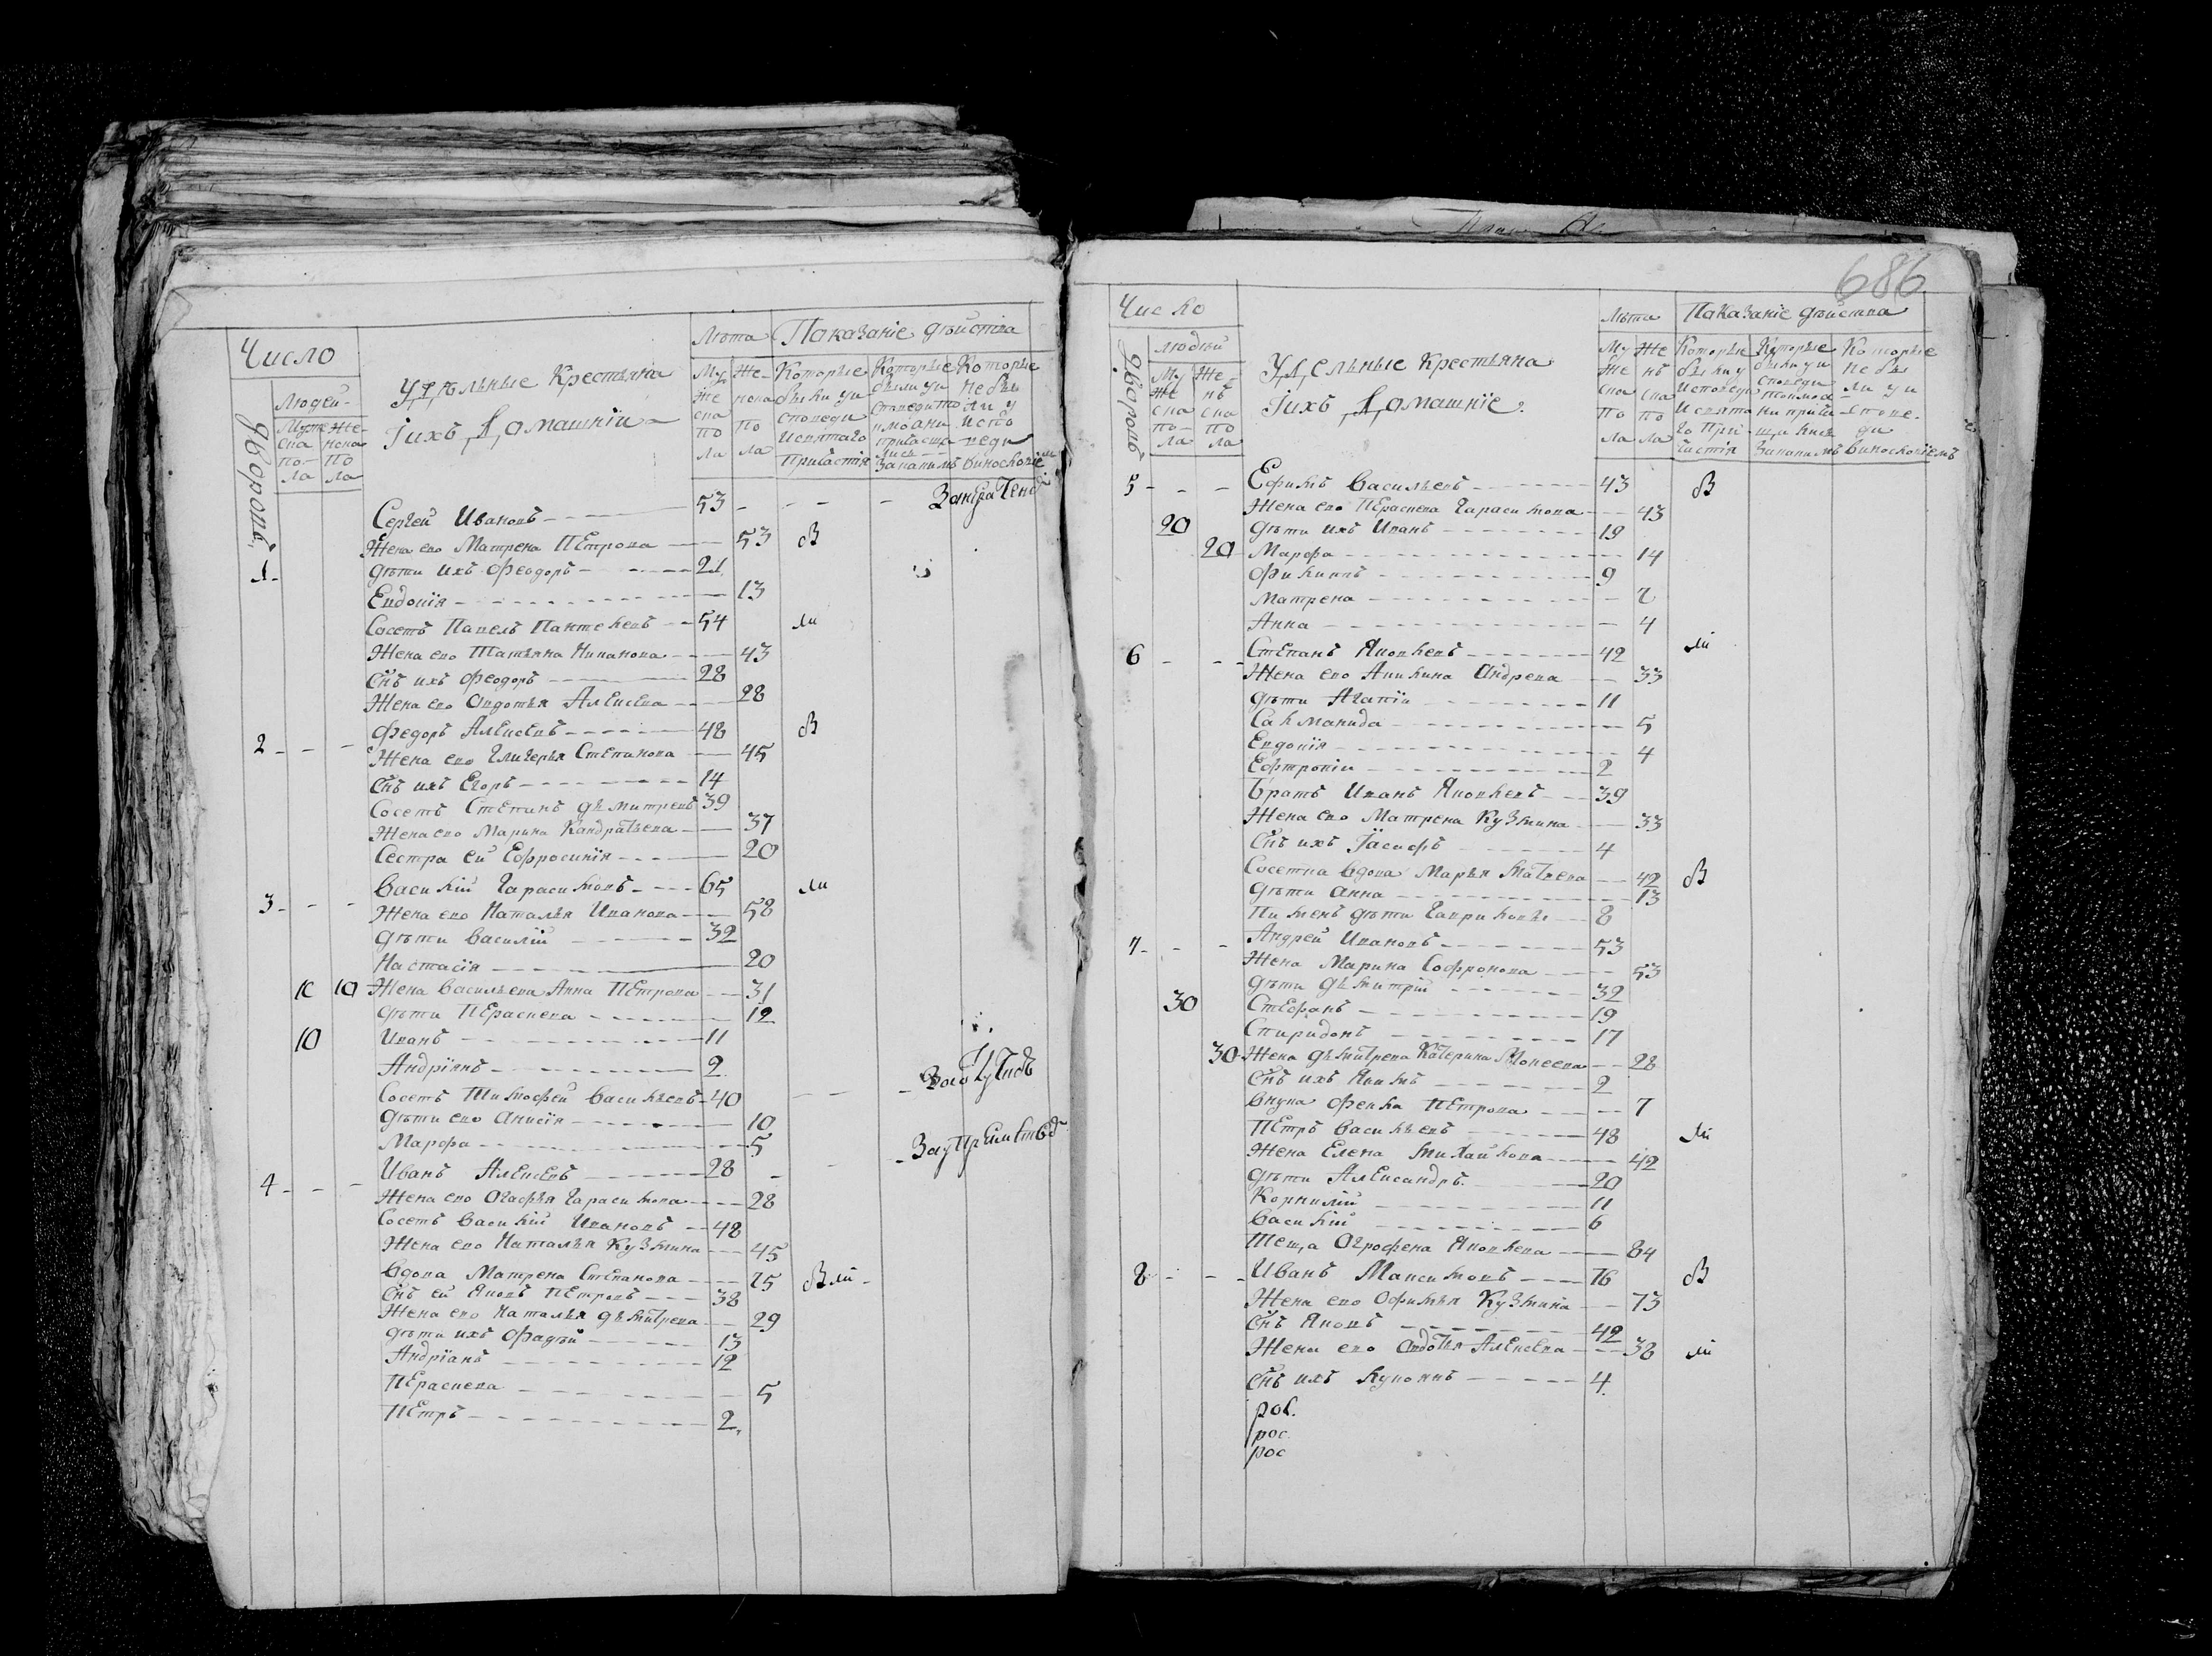 Число
Людей
дворовъ
Муже Же-
ска нска
по- по
ла ла
Удѣльные Крестьяна
Iихъ Домашнiи
Лѣта
Му Же-
же нска
ска по
по ла
ла
Показанiе дѣйства
Которые
были уи
споведи
исвятаго
Причастiя
Которые
были уи
споведи то
Которые
не бы
ли у
Сергей Ивановъ 53 Зан
Жена ево Матрена Петрова 53 В
1 дѣти ихъ Феодоръ 21
Евдокiя 13
Сосетъ Павелъ Пантелевъ 54 ли
Жена ево Татьяна Иванова 43
Снъ ихъ Феодоръ 28
Жена ево Авдотья Алексева 28
2 Федоръ Алексевъ 48 В
Жена ево Гликерья Степанова 45
Снъ ихъ Егоръ 14
Сосетъ Степанъ Дьмитревъ 39
Жена ево Марина Кандратьева 37
Сестра ей Ефросинiя 20
3 Василiй Гарасимовъ 65 ли
Жена ево Наталья Иванова 58
дѣти Василiй 32
Настасiя 20
10 10 Жена Васильева Анна Петрова 31
дѣти Пераскева 12
10 Иванъ 11
Андрiянъ 2
Сосетъ Тимофей Васильевъ 40
дѣти ево Анисiя 10
Марфа 5
4 Иванъ Алексевъ 28
Жена ево Огафья Гарасимова 28
Сосетъ Василiй Ивановъ 48
Жена ево Наталья Кузмина 45
Вдова Матрена Степанова 75 Вли
Снъ ей Яковъ Петровъ 38
Жена ево Наталья Дьмитрева 29
дѣти ихъ Фадѣй 13
Андрiанъ 12
Пераскева 5
Петръ 2
686
Число
людѣй
дворовъ
Му Же-
же нс
ска ска
по- по
ла ла
Удельные Крестьяна
Iихъ Домашнiе
Лѣта
Му Же
же нс
ска ска
по по
ла ла
Показанiе дѣйства
Которые
были у
исповеди
исвята
го При
частiя
Которые
были уи
споведи
Которые
не бы
ли уи
спове-
ди
5 Ефимъ Васильевъ 43 В
Жена ево Пераскева Гарасимова 43
20 дѣти ихъ Иванъ 19
20 Марфа 14
Филипъ 9
Матрена 7
Анна 4
6 Степанъ Яковлевъ 42 ли
Жена ево Акилина Андрева 33
дѣти Агапiи 11
Саломанида 5
Евдокiя 4
Ефтропiи 2
Братъ Иванъ Яковлевъ 39
Жена ево Матрена Кузмина 33
Снъ ихъ Iасифъ 4
Сосетка вдова Марья Матвева 42 В
дѣти Анна 13
Пименъ дѣти Гавриловы 8
7 Андрей Ивановъ 53
Жена Марина Софронова 53
дѣти Дьмитрiй 32
30 Стефанъ 19
Спиридонъ 17
30 Жена Дьмитрева Катерина Мокеева 28
Снъ ихъ Якимъ 2
Внука Фекла Петрова 7
Петръ Васильевъ 48 ли
Жена Елена Михайлова 42
дѣти Александръ 20
Корнилiй 11
Василiй 6
Теща Огрофена Яковлева 84
8 Иванъ Максимовъ 76 В
Жена ево Офимья Кузмина 73
Снъ Яковъ 42
Жена ево Авдотья Алексева 38 ли
Снъ ихъ Купиянъ 4
рос.
рос